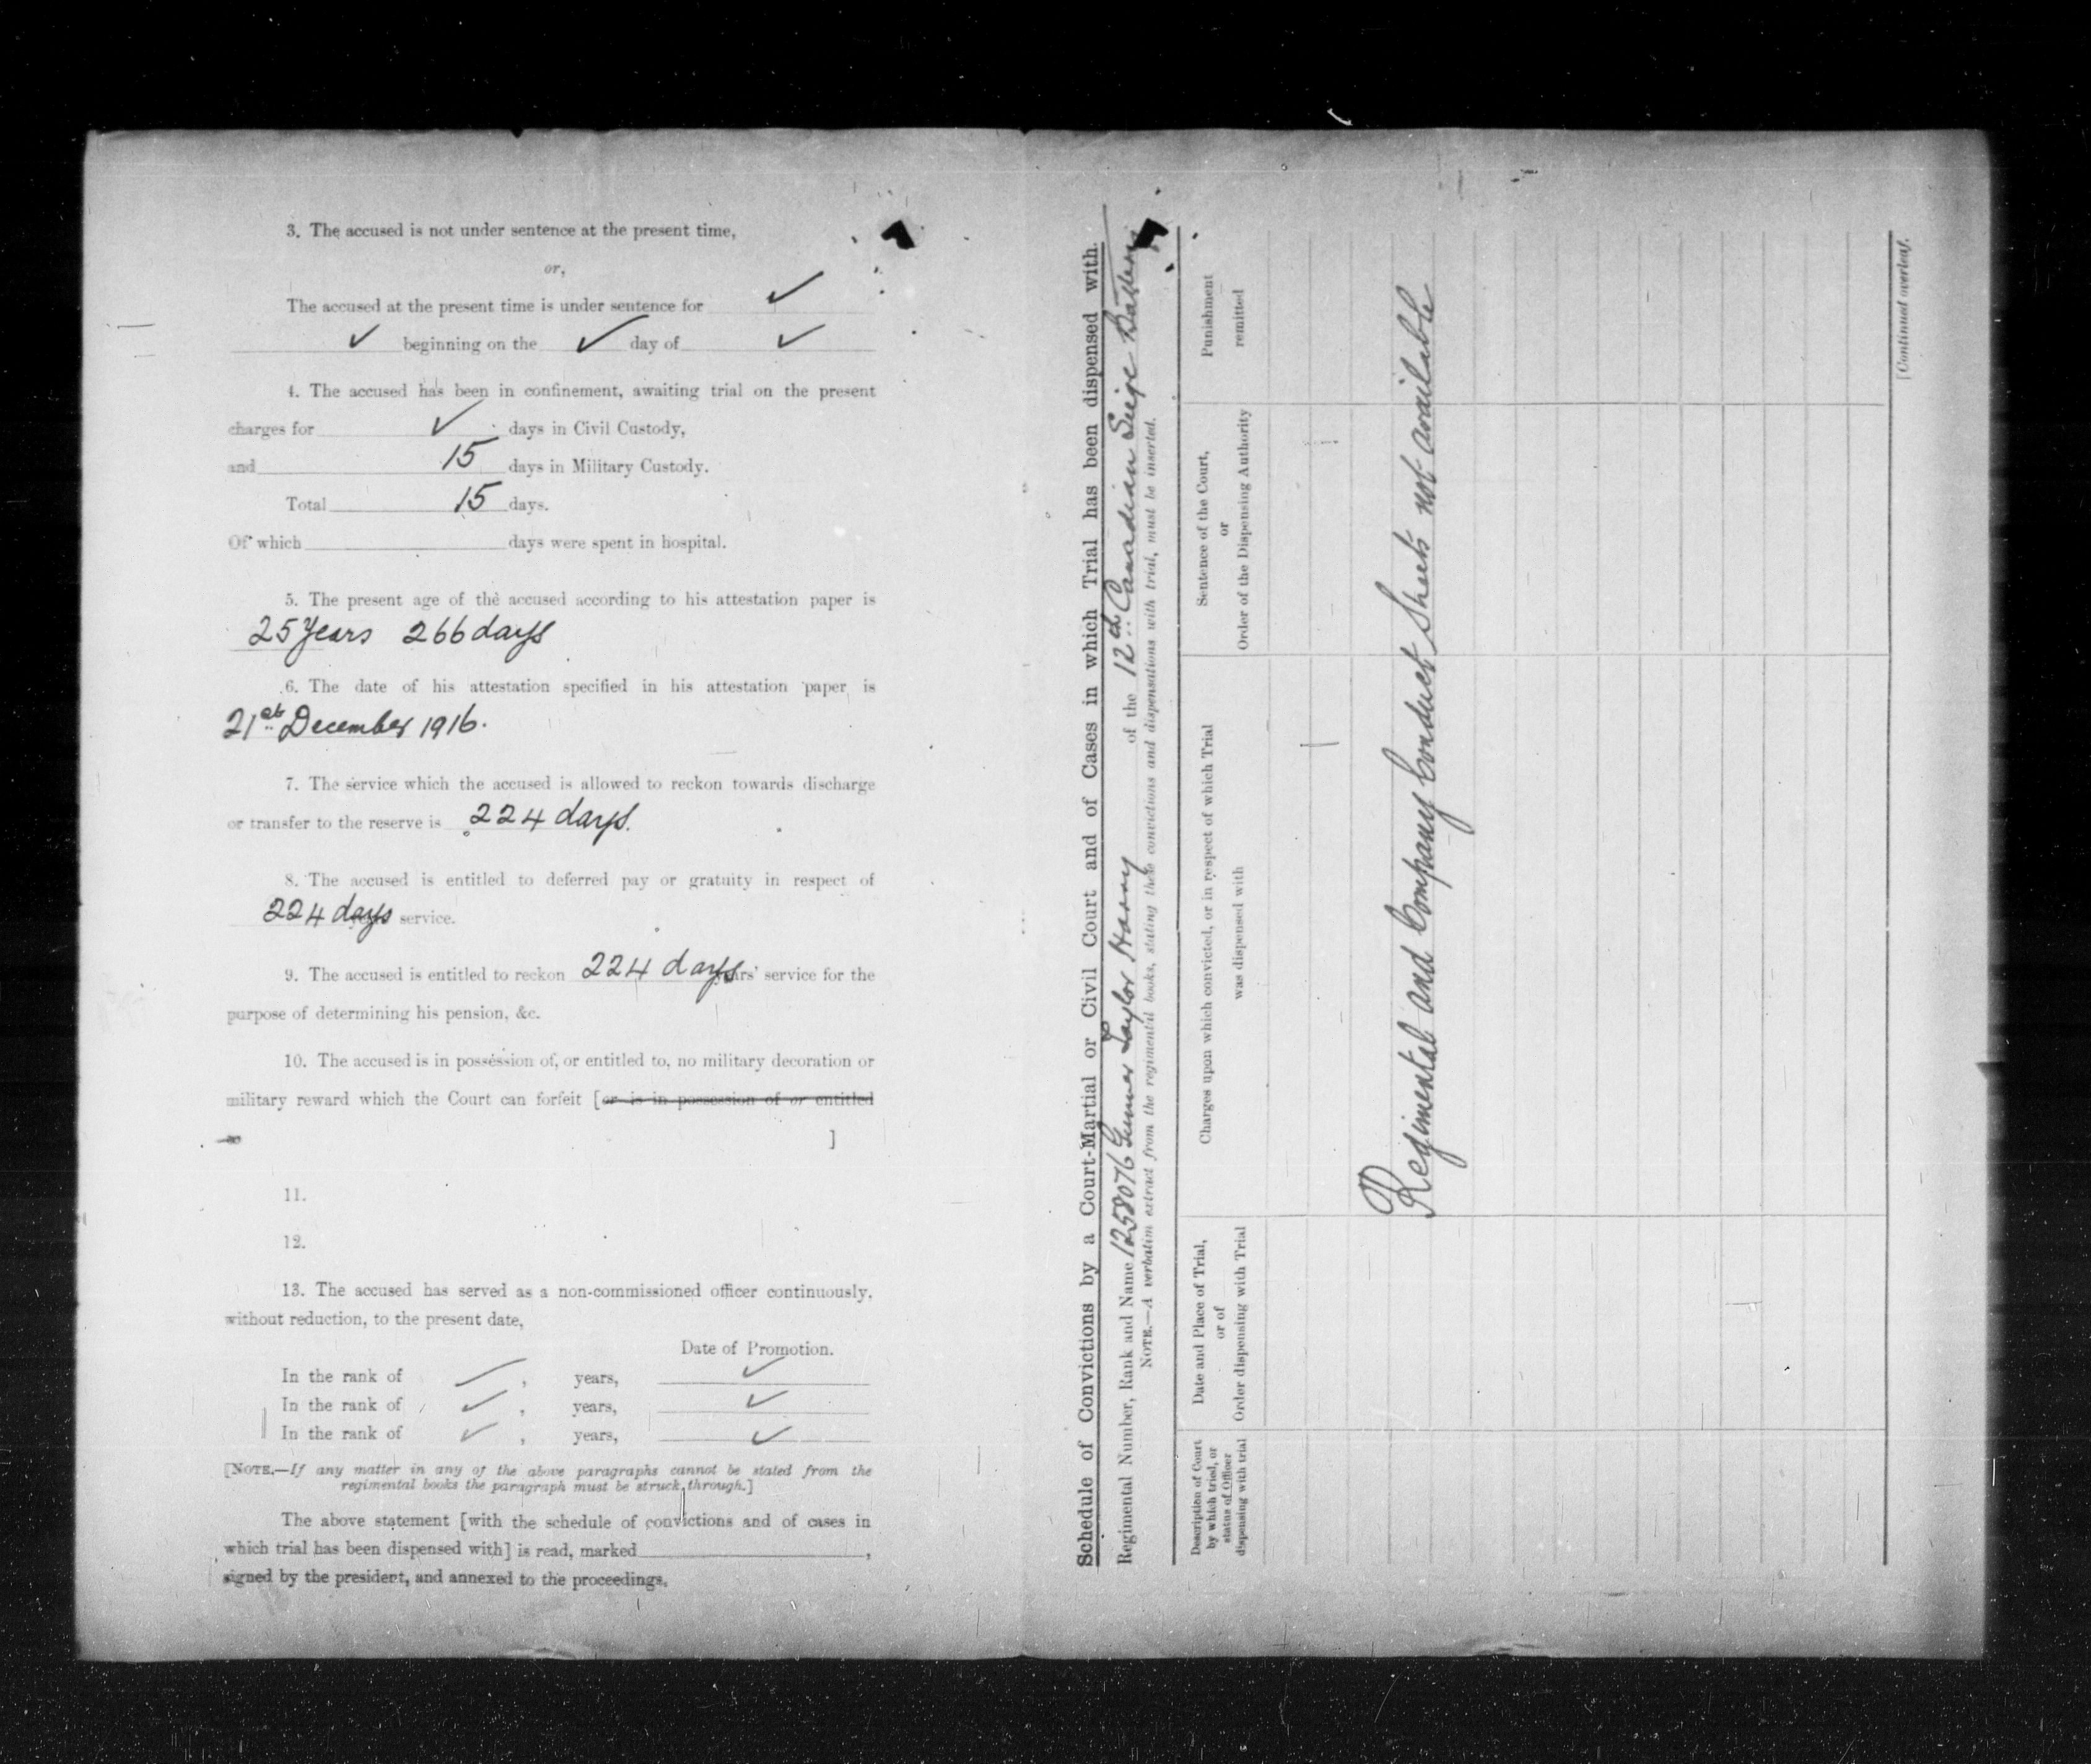 3. The accused is not under sentence at the present time,
or,
The accused at the present time is under sentence for ✓
✓ beginning on the ✓ day of ✓
4. The accused has been in confinement, awaiting trial on the present
charges for ✓ days in Civil Custody,
and 15 days in Military Custody.
Total 15 days.
Of which days were spent in hospital.
5. The present age of the accused according to his attestation paper is
25 Years 266 days
6. The date of his attestation specified in his attestation paper is
21st December 1916.
7. The service which the accused is allowed to reckon towards discharge
or transfer to the reserve is 224 days.
8. The accused is entitled to deferred pay or gratuity in respect of
224 days service.
9. The accused is entitled to reckon 224 days service for the
purpose of determining his pension, &c.
10. The accused is in possession of, or entitled to, no military decoration or
military reward which the Court can forfeit [or is in possession of or entitled
to ]
11.
12.
13. The accused has served as a non-commissioned officer continuously,
without reduction, to the present date,
Date of Promotion.
In the rank of ✓, years, ✓
In the rank of ✓, years, ✓
In the rank of ✓, years, ✓
[NOTE.—If any matter in any of the above paragraphs cannot be stated from the
regimental books the paragraph must be struck through.]
The above statement [with the schedule of convictions and of cases in
which trial has been dispensed with] is read, marked ,
signed by the president, and annexed to the proceedings.
Schedule of Convictions by a Court-Martial or Civil Court and of Cases in which Trial has been dispensed with.
Regimental Number, Rank and Name 1258076 Gunner Taylor Harry of the 12th Canadian Seige Battery
NOTE.—A verbatim extract from the regimental books, stating these convictions and dispensations with trial, must be inserted.
Description of Court
by which tried, or
status of Officer
dispensing with trial
Date and Place of Trial,
or of
Order dispensing with Trial
Charges upon which convicted, or in respect of which Trial
was dispensed with
Sentence of the Court,
or
Order of the Dispensing Authority
Punishment
remitted
Regimental and Company Conduct Sheets not available
[Continued overleaf.